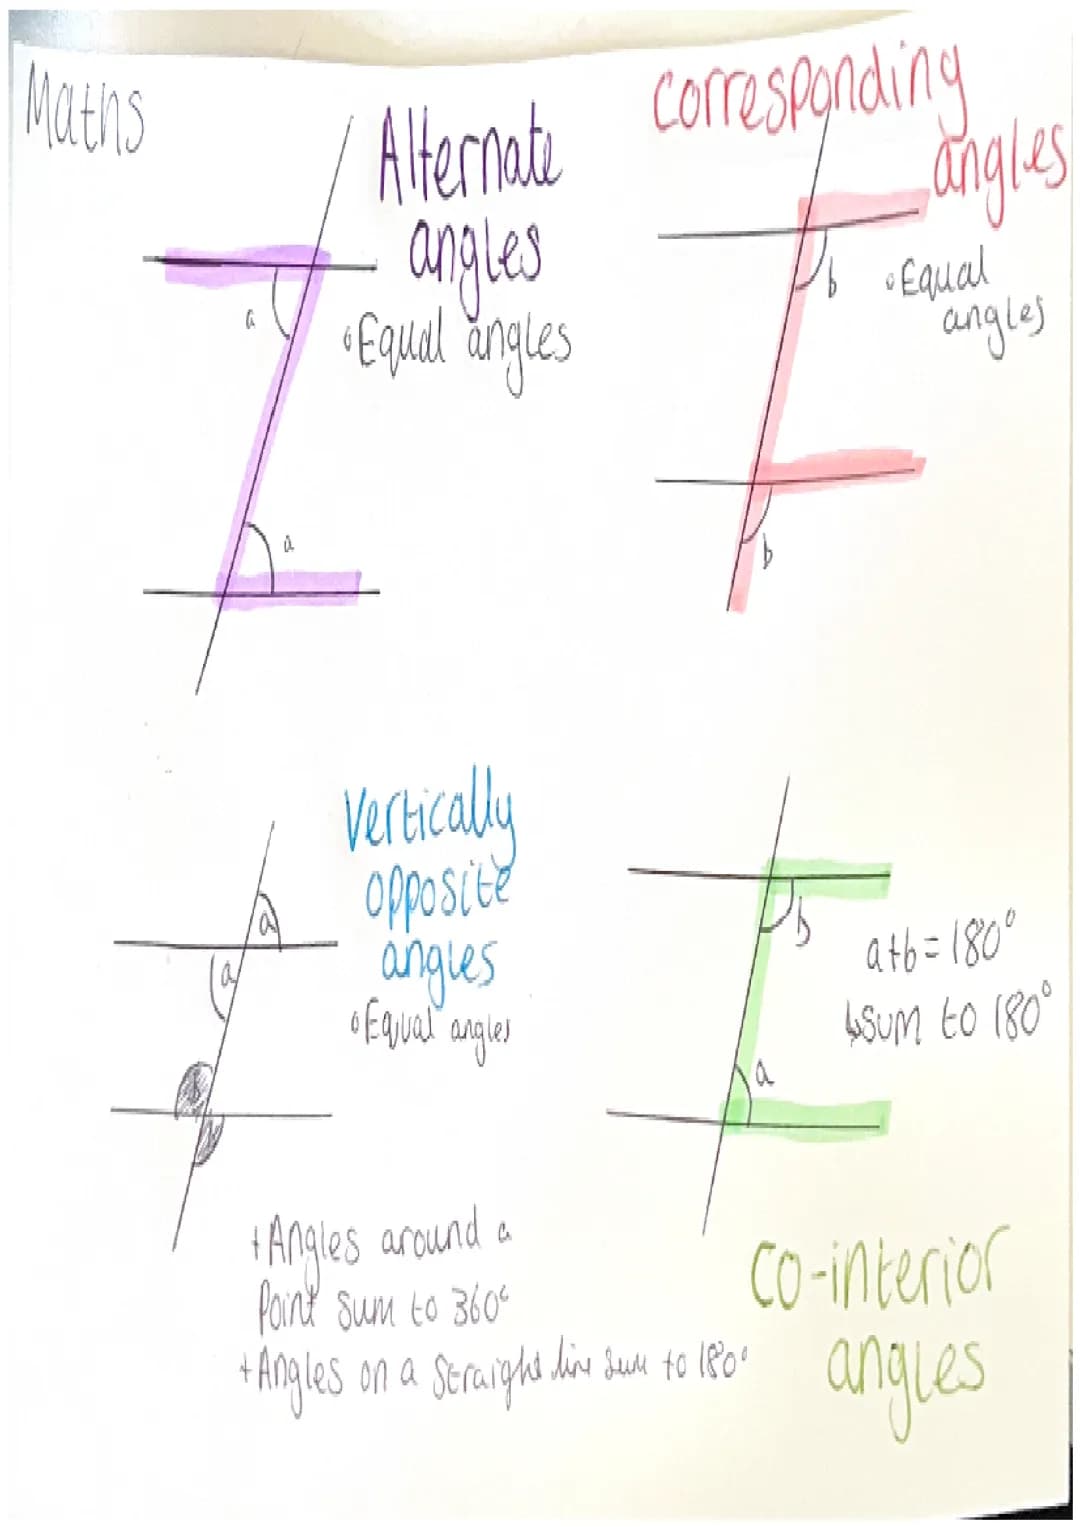 Maths
Alternate
angles
• Equal angles
a
a
corresponding
angles
• Equal
angles
b
b
Vertically
opposite
angles
• Equal angles
a
a
b
a+b=180°
↳sum to 180°
a
co-interior
angles
+Angles around a
Point sum to 360°
+Angles on a straight line sum to 180°